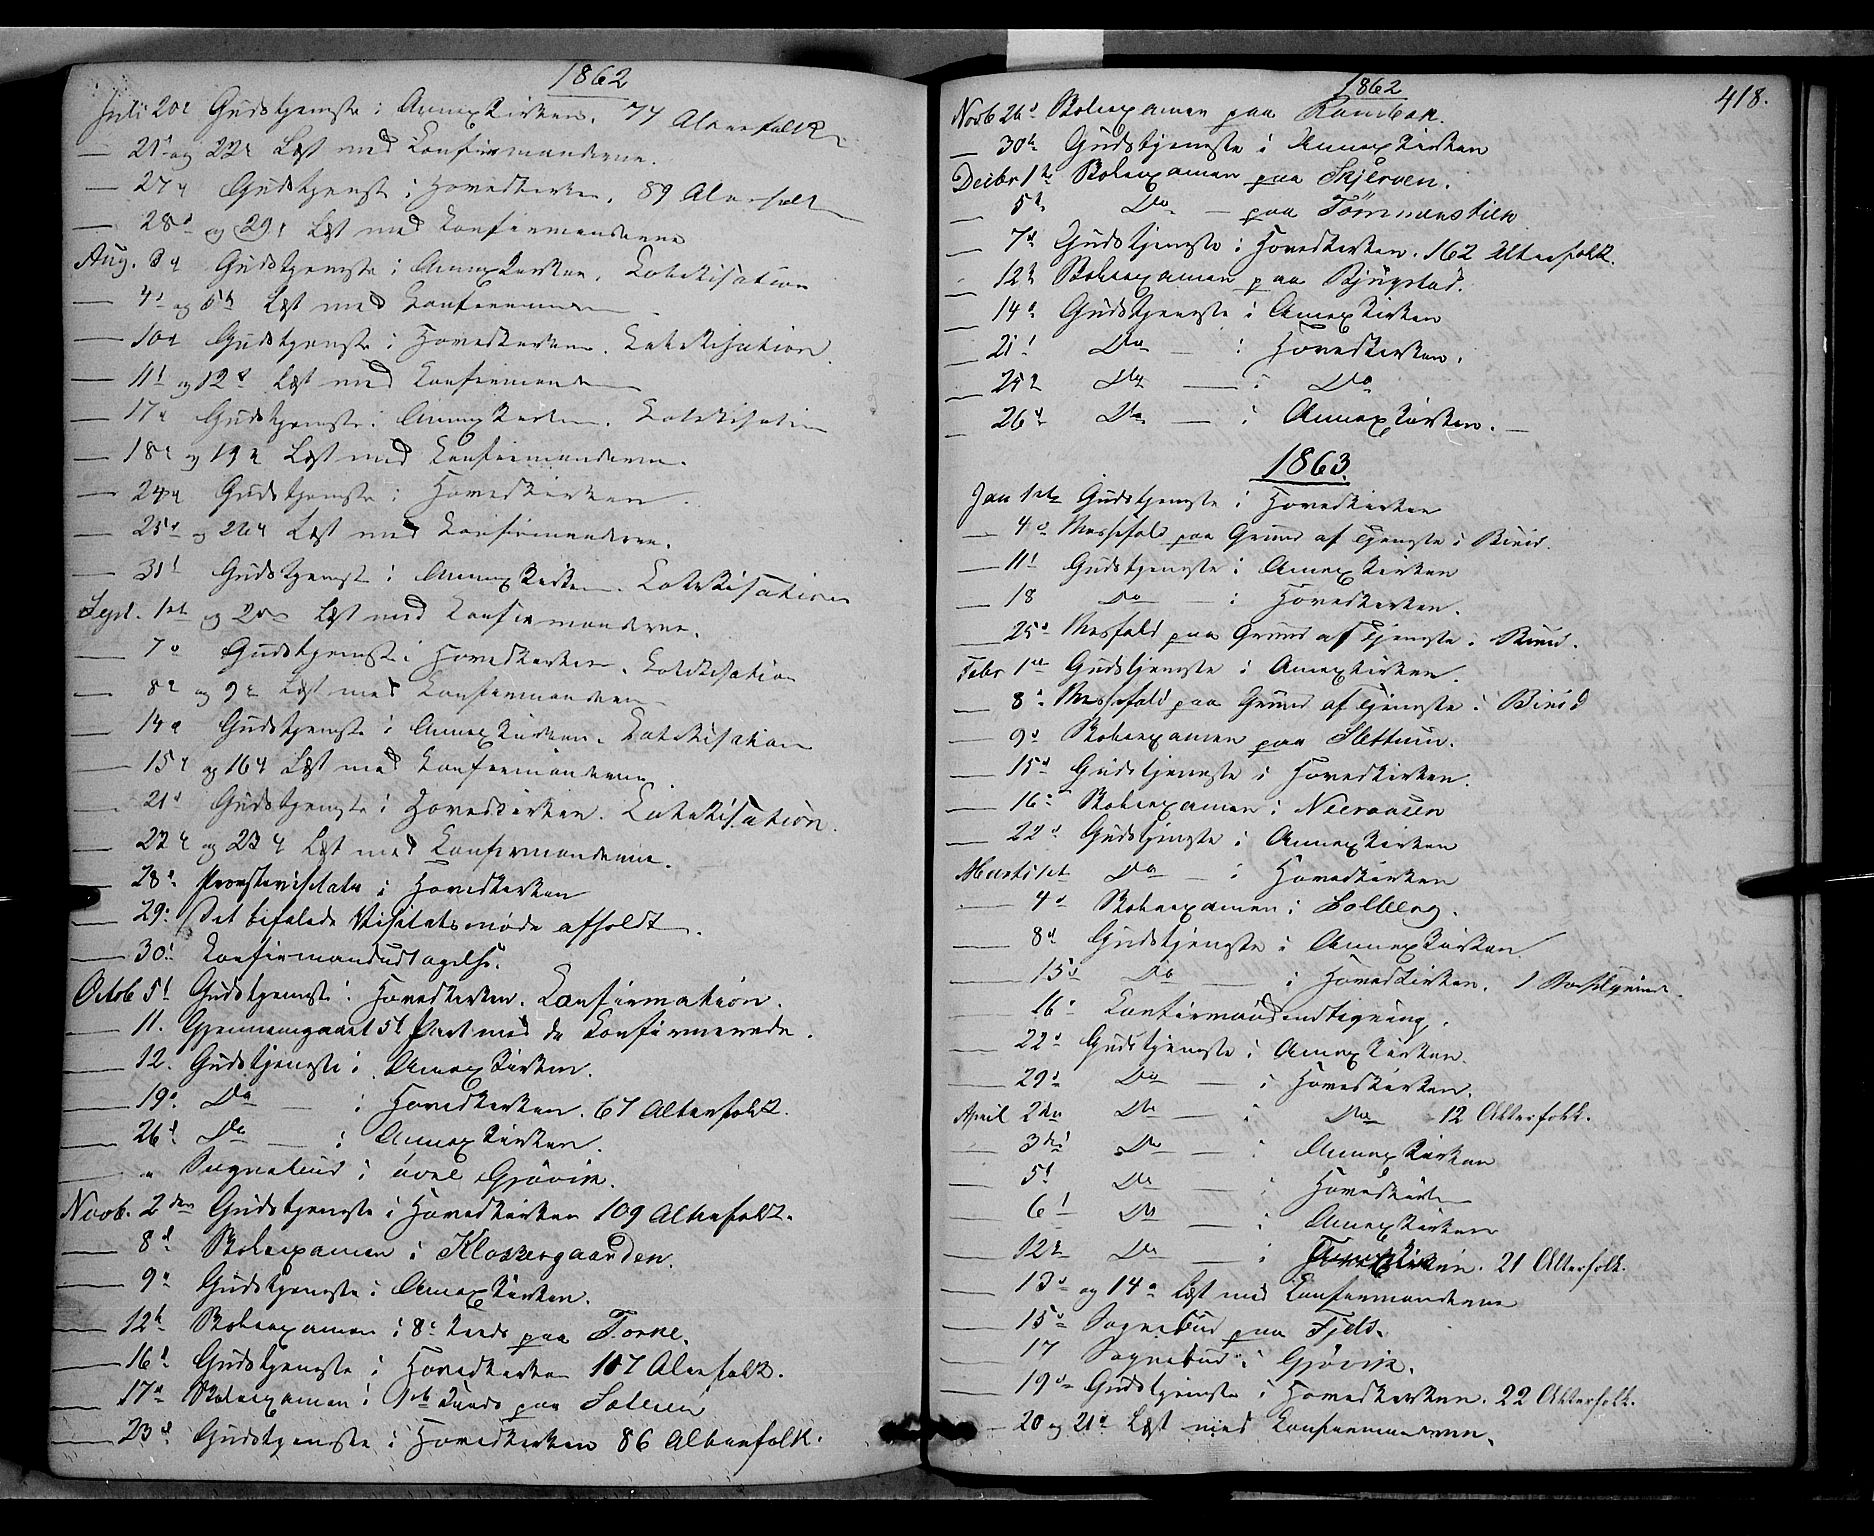 1862
Juli 20d Gudstjeneste i Annexkirken. 77 Altersfolk
— 21d og 22d Læst med Konfirmanderne.
— 27d Gudstjeneste i Hovedkirken. 89 Altersfolk
— 28d og 29d Læst med Konfirmanderne
Aug. 3d Gudstjeneste i Annexkirken. Katekisation
— 4d og 5d Læst med Konfirmanderne
— 10d Gudstjeneste i Hovedkirken. Katekisation.
— 11d og 12d Læst med Konfirmanderne
— 17d Gudstjeneste i Annexkirken. Katekisation
— 18d og 19d Læst med Konfirmanderne.
— 24d Gudstjeneste i Hovedkirken.
— 25d og 26d Læst med Konfirmanderne.
— 31d Gudstjeneste i Annexkirken. Katekisation
Sept. 1st og 2den Læst med Konfirmanderne.
— 7d Gudstjeneste i Hovedkirken. Katekisation
— 8d og 9d Læst med Konfirmanderne
— 14d Gudstjeneste i Annexkirken. Katekisation
— 15d og 16d Læst med Konfirmanderne
— 21d Gudstjeneste i Hovedkirken. Katekisation.
— 22d og 23d Læst med Konfirmanderne.
— 28d Provstevisitats i Hovedkirken
— 29d Det befalede Visitatsmøde afholdt.
— 30d Konfirmandudtagelse.
Octob 5d Gudstjeneste i Hovedkirken. Confirmation.
— 11. Gjennemgaaet 5t Part med de Konfirmerede.
— 12. Gudstjeneste i Annexkirken.
— 19d Do — i Hovedkirken. 67 Altersfolk.
— 26d Do — i Annexkirken.
— " Sognebud i øvre Gjøvik.
Novb. 2den Gudstjeneste i Hovedkirken 109 Altersfolk.
— 8d Skoleexamen i Klostergaarden.
— 9d Gudstjeneste i Annexkirken.
— 12d Skoleexamen i 8d Kreds paa
— 16d Gudstjeneste i Hovedkirken 107 Altersfolk.
— 17d Skoleexamen i Kreds paa
— 23d Gudstjeneste i Hovedkirken 86 Altersfolk.
1862
418.
Novb 26d Skoleexamen paa
— 30d Gudstjeneste i Annexkirken
Decbr 1st Skoleexamen paa Skjerven.
— 5d Do — paa Tømmerstien
— 7d Gudstjeneste i Hovedkirken. 162 Altersfolk.
— 12d Skoleexamen paa Bjugstad.
— 14d Gudstjeneste i Annexkirken
— 21d Do — i Hovedkirken.
— 25d Do — i Do
— 26d Do — i Annexkirken. —
1863.
Jan 1ste Gudstjeneste i Hovedkirken
— 4d Messefald paa Grund af Tjeneste i Birid.
— 11d Gudstjeneste i Annexkirken
— 18 Do — i Hovedkirken.
— 25d Mesfald paa Grund af Tjeneste i Birid.
Febr 1st Gudstjeneste i Annexkirken.
— 8d Messefald paa Grund af Tjeneste i Birid
— 9d Skoleexamen paa Slettum.
— 15d Gudstjeneste i Hovedkirken.
— 16d Skoleexamen i
— 22d Gudstjeneste i Annexkirken
Marts 1st Do — i Hovedkirken
— 4d Skoleexamen i Solberg.
— 8d Gudstjeneste i Annexkirken
— 15d Do — i Hovedkirken. 1
— 16d Konfirmandindtegning.
— 22d Gudstjeneste i Annexkirken.
— 29d Do — i Hovedkirken.
April 2den Do — i Do 12 Altersfolk.
— 3die Do — i Annexkirken
— 5d Do — i Hovedkirken
— 6d Do — i Annexkirken
— 12d Do — i 21 Altersfolk.
— 13d og 14d Læst med Konfirmanderne
— 15d Sognebud paa Fjeld.
— 17 Sognebud i Gjøvik.
— 19d Gudstjeneste i Hovedkirken. 22 Altersfolk.
— 20 og 21d Læst med Konfirmanderne.